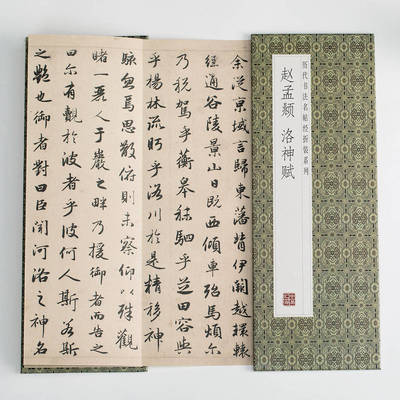 历代书法名帖经折装系列
赵孟頫 洛神赋
余從京域言歸東藩背伊闕越轘轅
經通谷陵景山日既西傾車殆馬煩尔
乃稅駕乎蘅皋秣駟乎芝田容與
乎楊林流眄乎洛川於是精移神
駭忽焉思散俯則未察仰以殊觀
睹一麗人于巖之畔乃援御者而告之
曰尔有覿於彼者乎彼何人斯若斯
之豔也御者對曰臣聞河洛之神名